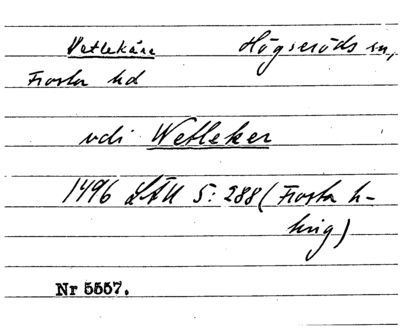 Vetlekärr Högseröds sn,
Frosta hd
vdi Wetleker
1496 LÄU 5: 288 (Frosta h-
ting)
Nr 5557.